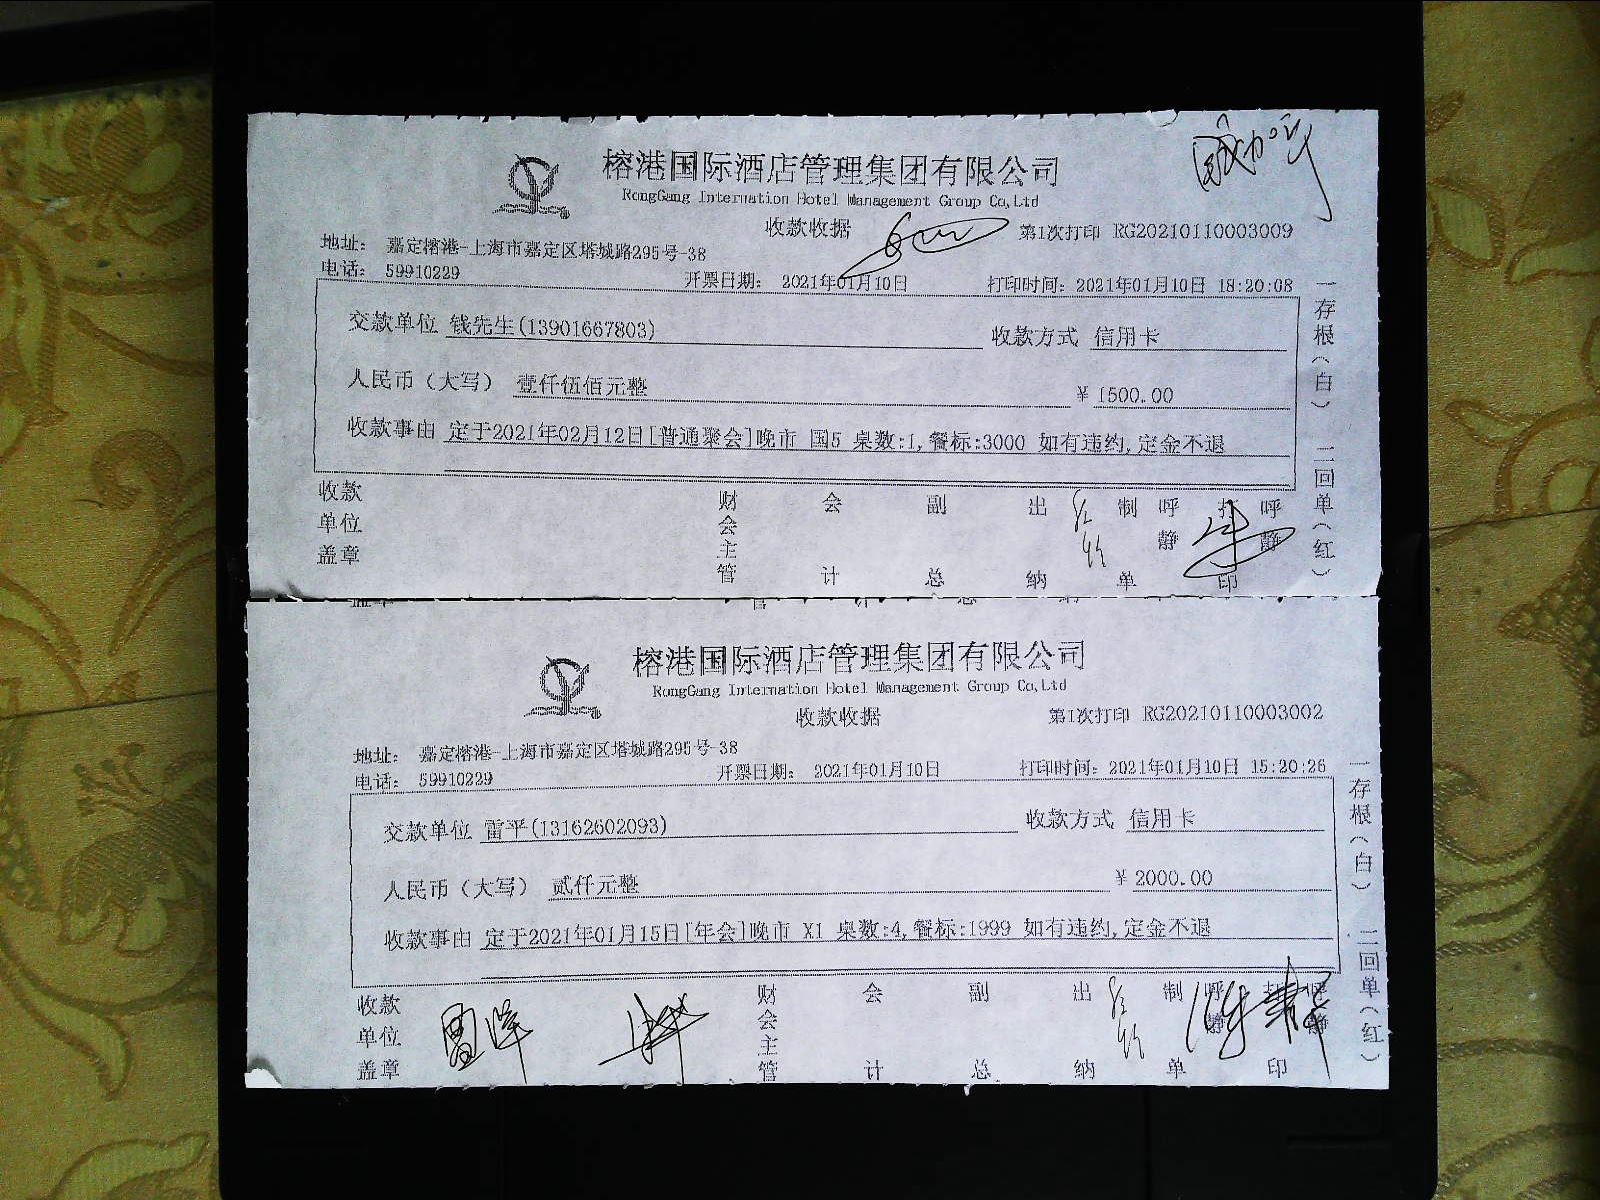 榕港国际酒店管理集团有限公司
RongGang Internation Hotel Management Group Co,Ltd
收款收据 第1次打印 RG20210110003009
地址: 嘉定榕港-上海市嘉定区塔城路295号-38
电话: 59910229 开票日期: 2021年01月10日 打印时间: 2021年01月10日 18:20:08
交款单位 钱先生(13901667803) 收款方式 信用卡
人民币(大写) 壹仟伍佰元整 ¥1500.00
收款事由 定于2021年02月12日[普通聚会]晚市 国5 桌数:1,餐标:3000 如有违约,定金不退
收款单位盖章 财会主管 会计 副总 出纳 制单 呼静 打印 呼静
一存根(白) 二回单(红)
榕港国际酒店管理集团有限公司
RongGang Internation Hotel Management Group Co,Ltd
收款收据 第1次打印 RG20210110003002
地址: 嘉定榕港-上海市嘉定区塔城路295号-38
电话: 59910229 开票日期: 2021年01月10日 打印时间: 2021年01月10日 15:20:26
交款单位 雷平(13162602093) 收款方式 信用卡
人民币(大写) 贰仟元整 ¥2000.00
收款事由 定于2021年01月15日[年会]晚市 X1 桌数:4,餐标:1999 如有违约,定金不退
收款单位盖章 财会主管 会计 副总 出纳 制单 呼静 打印 呼静
一存根(白) 二回单(红)